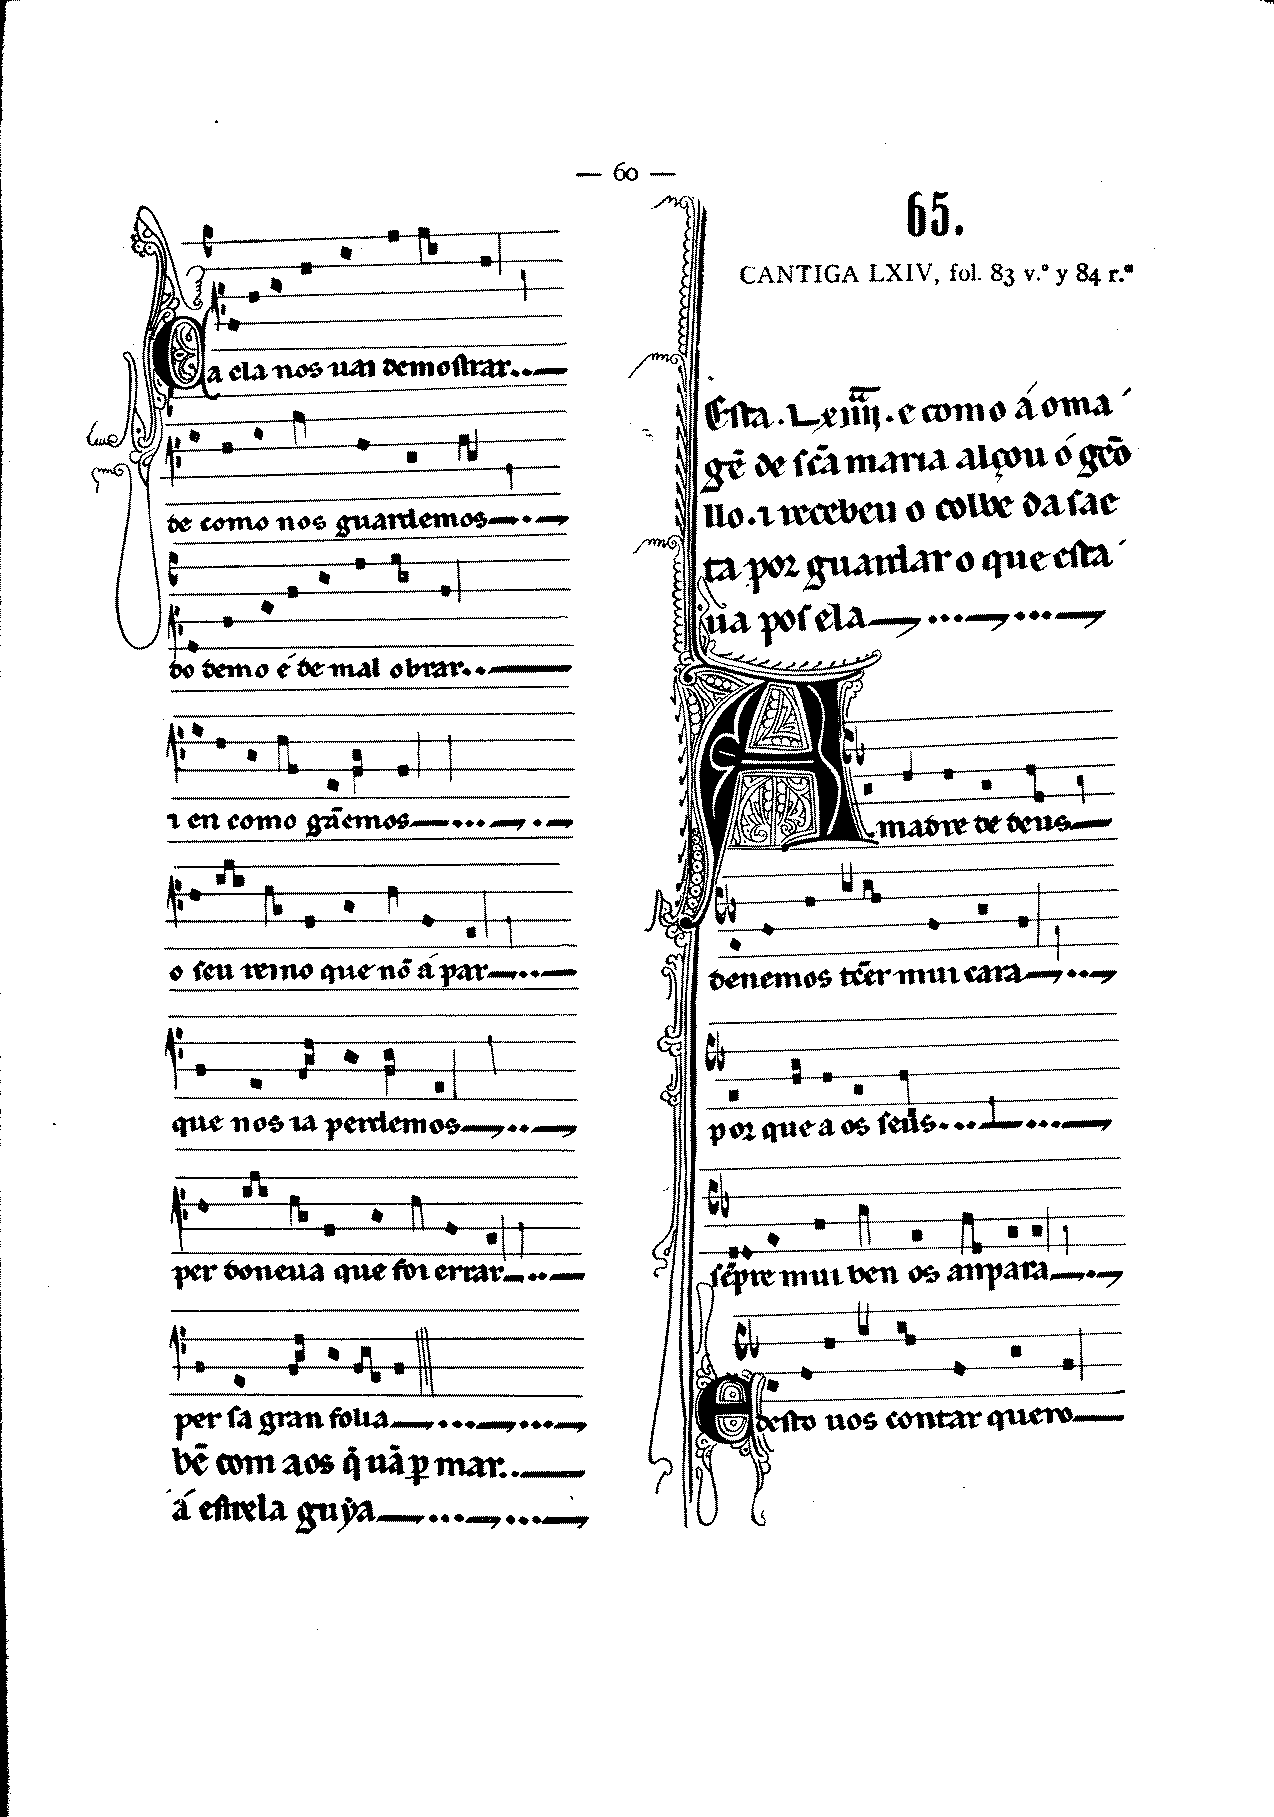 — 60 —
Ca ela nos uai demostrar
de como nos guardemos
do demo e de mal obrar
ı en como gãemos
o seu reino que nõ á par
que nos ia perdemos
per doneua que foi errar
per sa gran folia
bẽ com aos q̃ uã ꝑ mar
á estrela guÿa
65.
CANTIGA LXIV, fol. 83 v.º y 84 r.º
Esta .Lxiiii. e como á oma
gẽ de sc̃a maria alçou ó gẽo
llo. ı recebeu o colbe da sae
ta por guardar o que esta
ua pos ela
A madre de deus
deuemos tẽer mui cara
por que a os seus
sẽpre mui ben os anpara
E desto uos contar quero